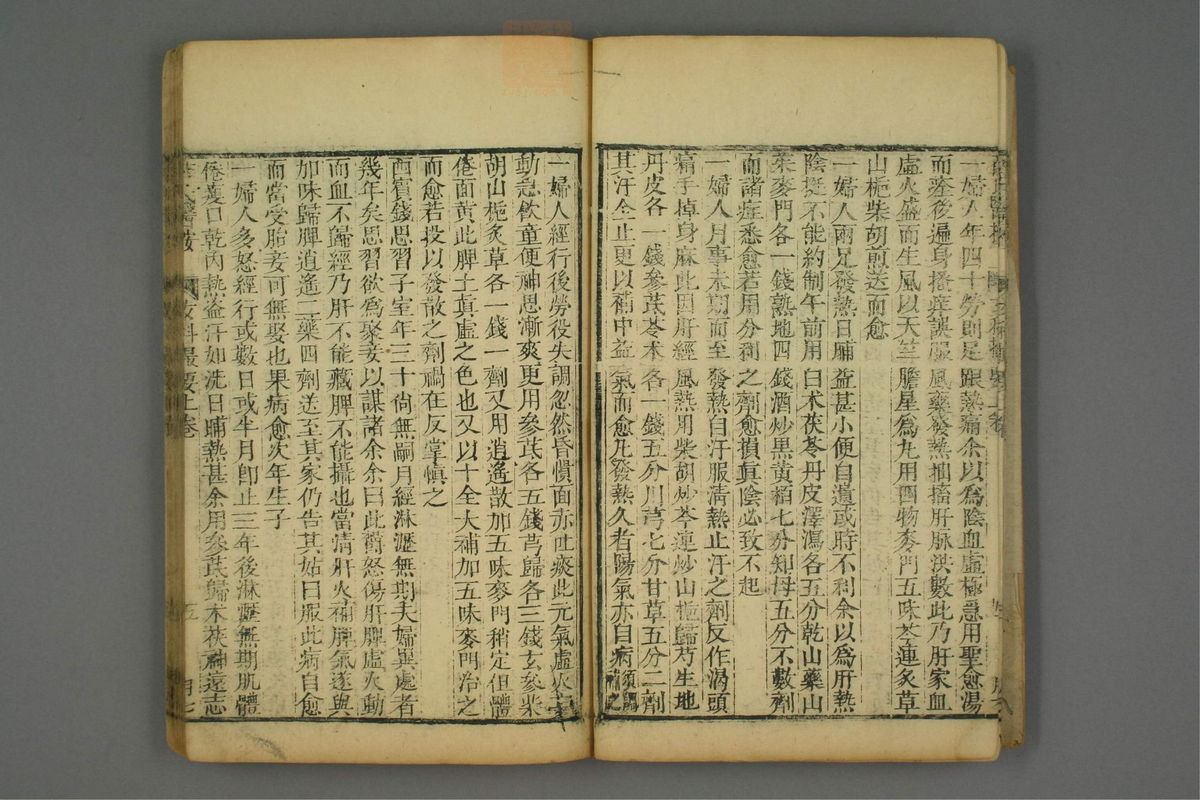 一婦人年四十勞則足跟熱痛余以爲陰血虛極急用聖愈湯
而痊後遍身搔痒誤服風藥發熱搐搦肝脉洪數此乃肝家血
虛火盛而生風以天竺膽星爲丸用四物麥門五味芩連炙草
山梔柴胡煎送而愈
一婦人兩兄發熱日晡益甚小便自遺或時不利余以爲肝熱
陰挺不能約制午前用白术茯苓丹皮澤瀉各五分乾山藥山
茱麥門各一錢熟地四錢酒炒黑黃栢七分知母五分不數劑
而諸症悉愈若用分利之劑愈損真陰必致不起
一婦人月事未期而至發熱自汗服清熱止汗之劑反作渴頭
痛手掉身麻此因肝經風熱用柴胡炒芩連炒山梔歸芍生地
丹皮各一錢參芪苓术各一錢五分川芎七分甘草五分二劑
其汗全止更以補中益氣而愈凡發熱久者陽氣亦自病須調補之
一婦人經行後勞役失調忽然昏憒面赤吐痰此元氣虛火妄
動急飲童便神思漸爽更用參芪各五錢芎歸各三錢玄參柴
胡山梔炙草各一錢一劑又用逍遙散加五味麥門稍定但體
倦面黃此脾土真虛之色也又以十全大補加五味麥門治之
而愈若投以發散之劑禍在反掌慎之
西賓錢思習子室年三十尚無嗣月經淋瀝無期夫婦異處者
幾年矣思習欲爲娶妾以謀諸余余曰此鬱怒傷肝脾虛火動
而血不歸經乃肝不能藏脾不能攝也當清肝火補脾氣遂與
加味歸脾逍遙二藥四劑送至其家仍告其姑曰服此病自愈
而當受胎妾可無娶也果病愈次年生子
一婦人多怒經行或數日或半月卽止三年後淋瀝無期肌體
倦瘦口乾內熱盜汗如洗日晡熱甚余用參芪歸术茯神遠志
女科撮要上卷
五